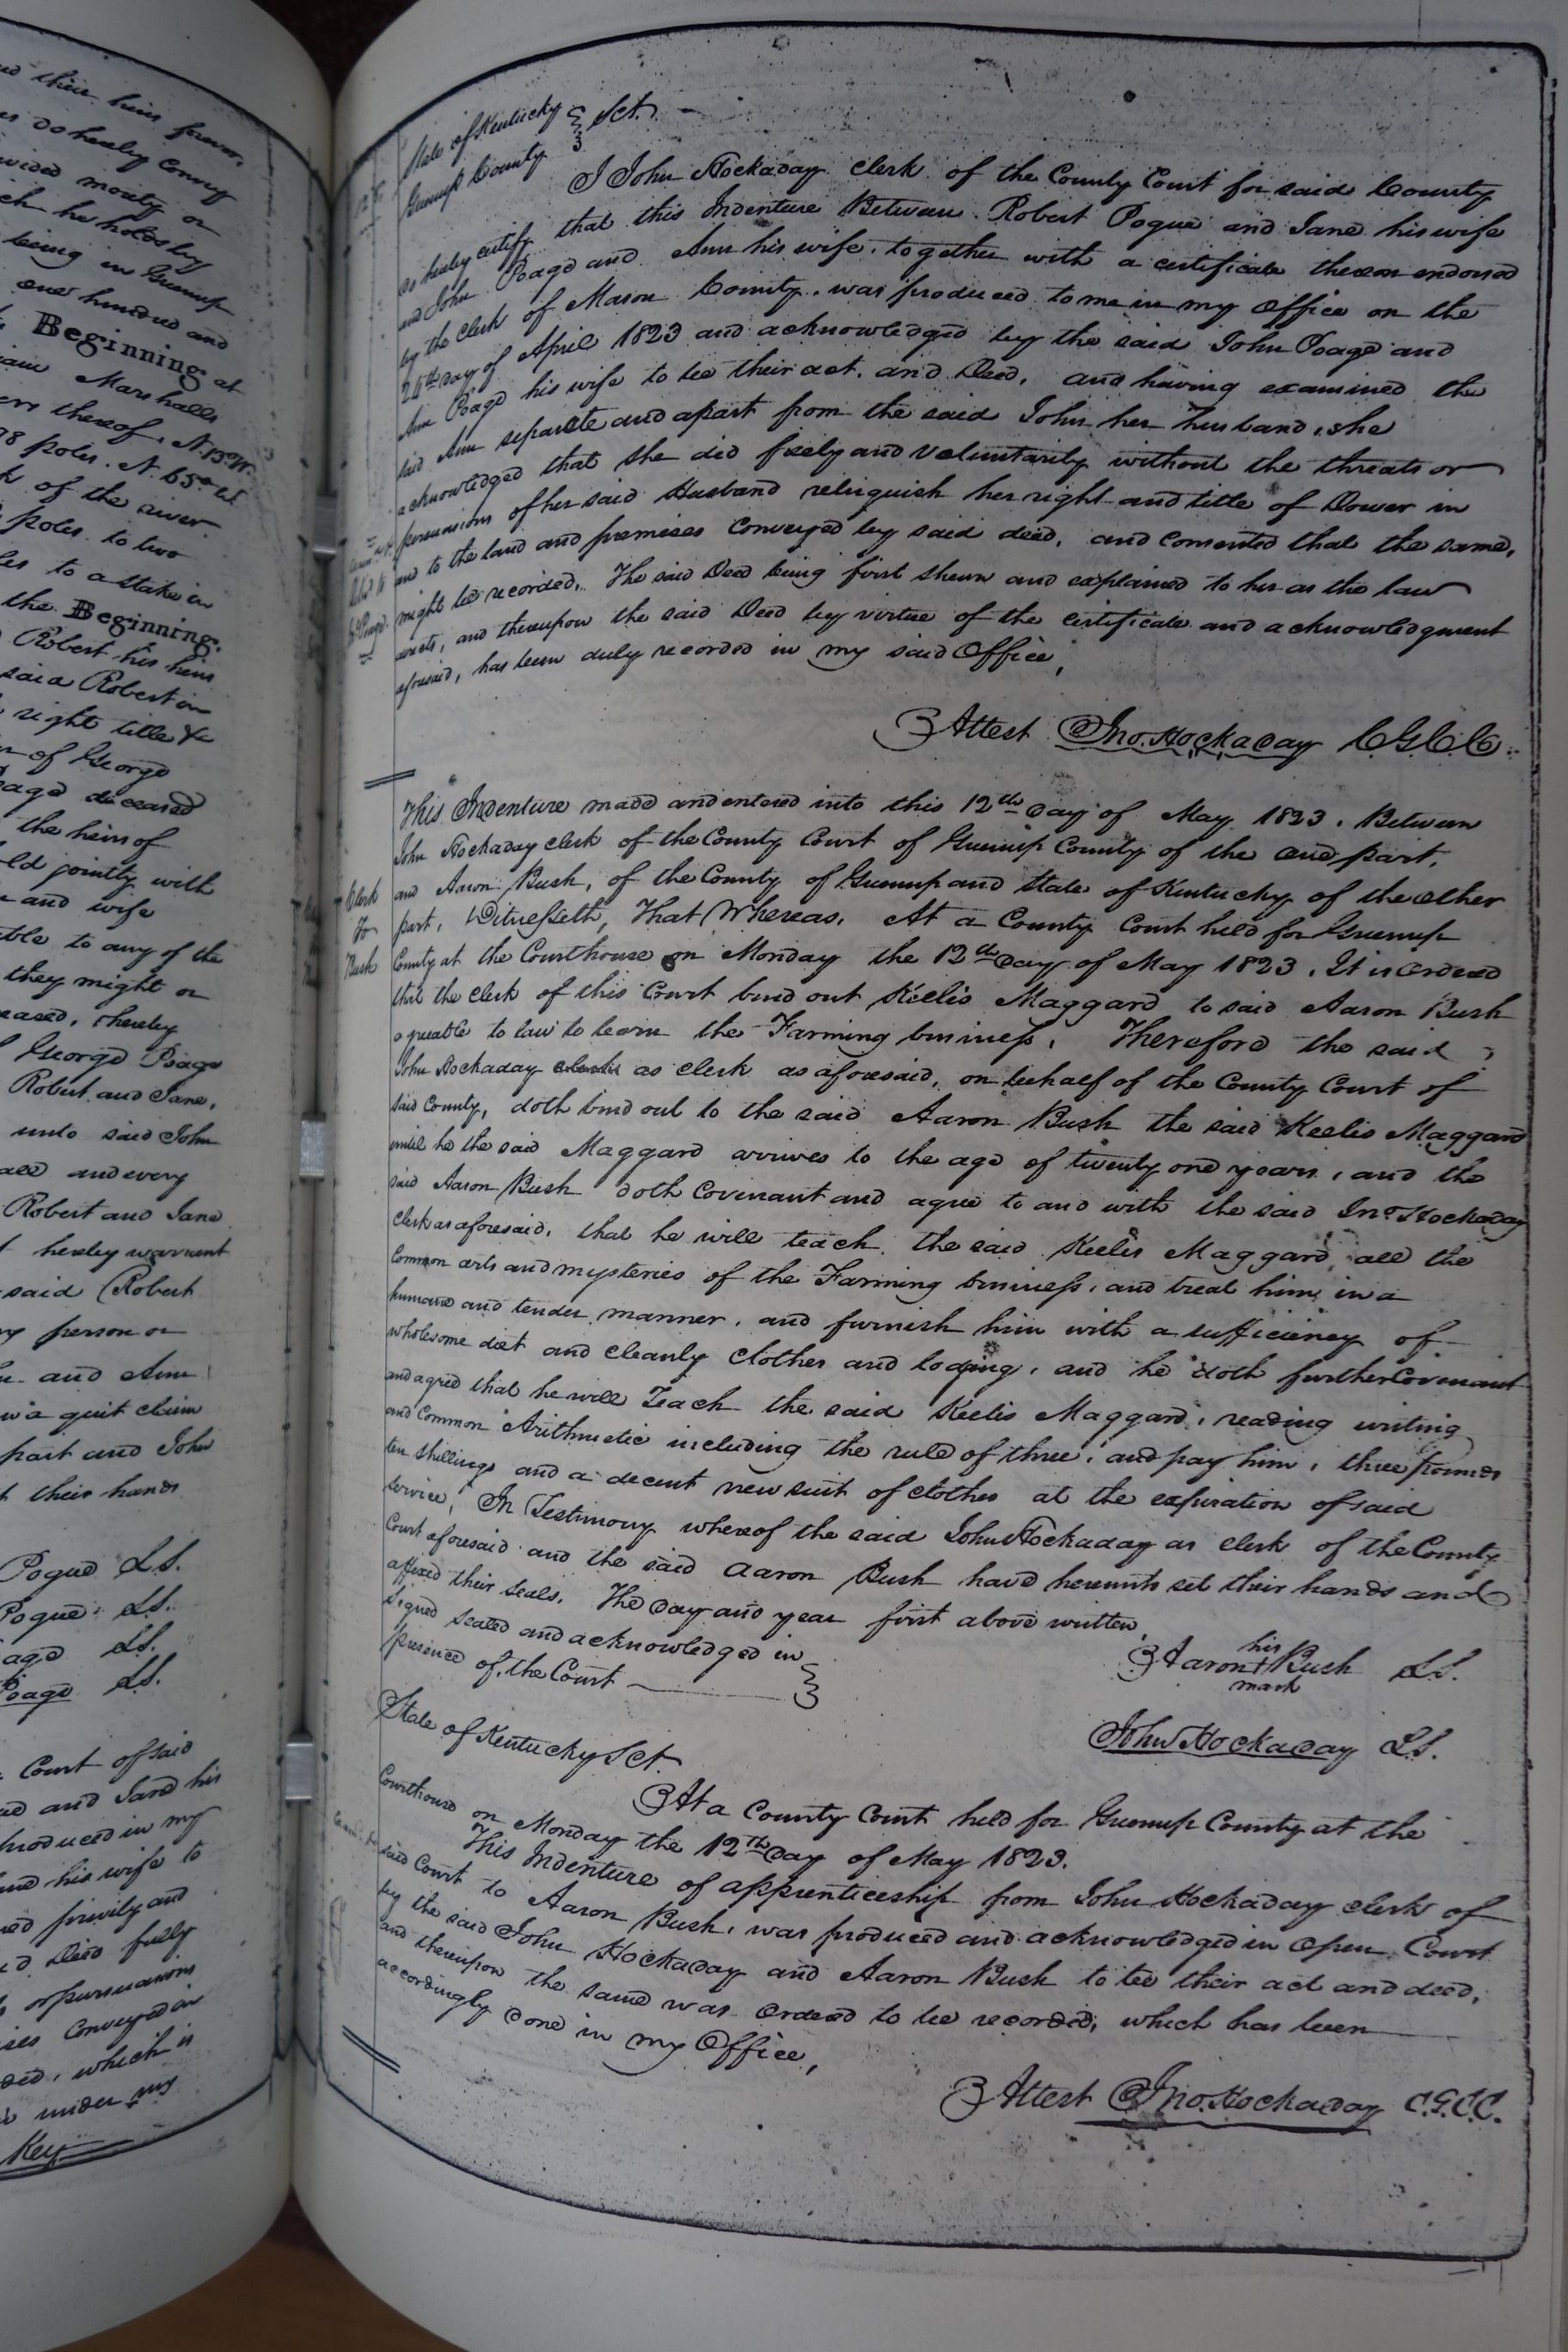 and their heirs forever.
do hereby convey
moiety or
ch he holds by
being in Greenup
one hundred and
Beginning at
Marshalls
thereof, N. 13° W.
98 poles. N. 65° W
k of the river
poles. to two
to a stake in
the Beginning.
Robert his heirs
said Robert in
right title &c
of George
deceased
the heirs of
ld jointly with
and wife
to any of the
they might or
hereby
George Poage
Robert and Jane,
unto said John
all and every
Robert and Jane
hereby warrant
said Robert
person or
and Ann
a quit claim
part and John
their hands
Pogue LS.
Pogue LS.
age LS.
Poage LS.
Court of said
and Jane his
produced in my
his wife to
privily and
Deed fully
or persuasions
Conveyed in
, which is
under my
Key
State of Kentucky } Sct.
Greenup County
I John Hockaday clerk of the County Court for said County
do hereby certify that this Indenture Between Robert Pogue and Jane his wife
and John Poage and Ann his wife, together with a certificate thereon endorsed
by the Clerk of Mason County, was produced to me in my office on the
24th day of April 1823 and acknowledged by the said John Poage and
Ann Poage his wife to be their act, and Deed, and having examined the
said Ann separate and apart from the said John her husband, she
acknowledged that she did freely and voluntarily without the threats or
persuasions of her said Husband relinquish her right and title of Dower in
and to the land and premises Conveyed by said deed, and consented that the same,
might be recorded, The said Deed being first shewn and explained to her as the law
directs, and thereupon the said Deed by virtue of the certificate and acknowledgment
aforesaid, has been duly recorded in my said Office,
Attest Jno. Hockaday C.G.C.C.
Clerk
To
Bush
This Indenture made and entered into this 12th day of May 1823. Between
John Hockaday clerk of the County Court of Greenup County of the one part,
and Aaron Bush, of the County of Greenup and State of Kentucky of the other
part, Witnesseth, That Whereas, At a County Court held for Greenup
County at the Courthouse on Monday the 12th day of May 1823. It is ordered
that the clerk of this Court bind out Keelis Maggard to said Aaron Bush
agreeable to law to learn the Farming business, Therefore the said
John Hockaday as clerk as aforesaid, on behalf of the County Court of
said County, doth bind out to the said Aaron Bush the said Keelis Maggard
until he the said Maggard arrives to the age of twenty one years, and the
said Aaron Bush doth covenant and agree to and with the said Jno Hockaday
Clerk as aforesaid, that he will teach the said Keelis Maggard, all the
Common arts and mysteries of the Farming business, and treat him in a
humane and tender manner, and furnish him with a sufficiency of
wholesome diet and cleanly clothes and lodging, and he doth further Covenant
and agree that he will Teach the said Keelis Maggard, reading writing
and Common Arithmetic including the rule of three, and pay him, three pounds
ten shillings and a decent new suit of clothes at the expiration of said
service, In Testimony whereof the said John Hockaday as clerk of the County
Court aforesaid and the said Aaron Bush have hereunto set their hands and
affixed their seals, The day and year first above written
Signed sealed and acknowledged in
presence of, the Court
his
Aaron + Bush LS.
mark
John Hockaday LS.
State of Kentucky Sct.
At a County Court held for Greenup County at the
Courthouse on Monday the 12th day of May 1823.
This Indenture of apprenticeship from John Hockaday clerk of
said Court to Aaron Bush, was produced and acknowledged in open Court
by the said John Hockaday and Aaron Bush to be their act and deed,
and thereupon the same was ordered to be recorded, which has been
accordingly done in my Office,
Attest Jno. Hockaday C.G.C.C.